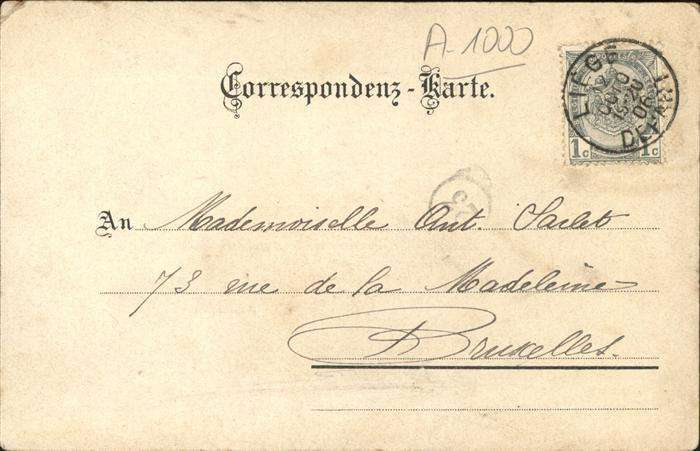 A-1000
Correspondenz-Karte.
LIEGE
DEPART
1c 1c
An Mademoiselle Ant. Sarlet
73 rue de la Madeleine
Bruxelles.